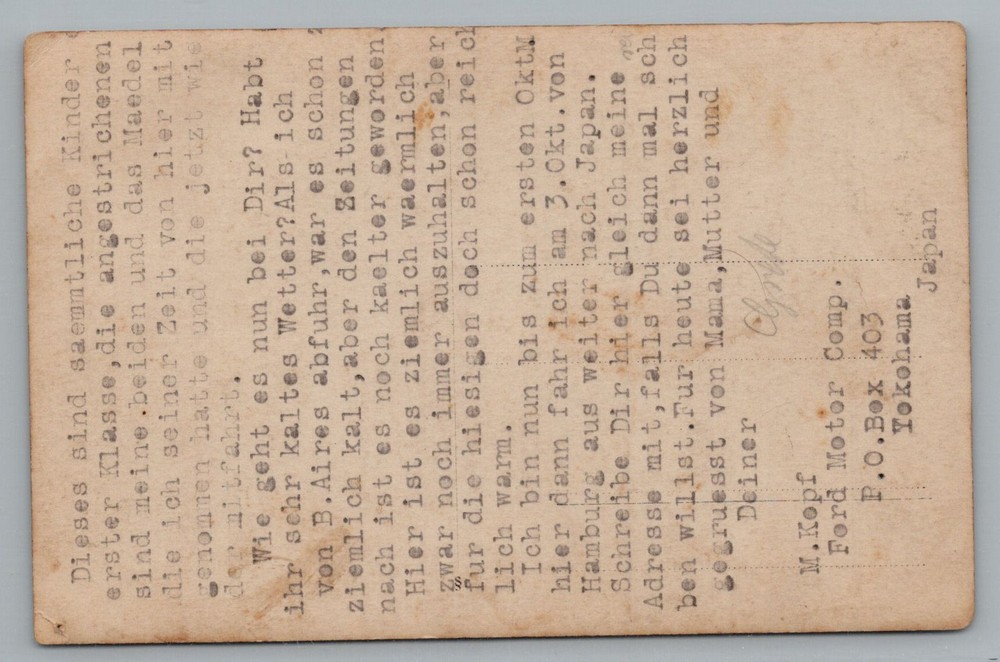 Dieses sind saemmtliche Kinder
erster Klasse,die angestrichenen
sind meine beiden und das Maedel
die ich seiner Zeit von hier mit
genommen hatte und die jetzt wie
der mitfahrt.
Wie geht es nun bei Dir? Habt
ihr sehr kaltes Wetter?Als ich
von B.Aires abfuhr,war es schon
ziemlich kalt,aber den Zeitungen
nach ist es noch kaelter geworden
Hier ist es ziemlich waermlich
zwar noch immer auszuhalten,aber
fur die hiesigen doch schon reich
lich warm.
Ich bin nun bis zum ersten Okt
hier dann fahr ich am 3.Okt.von
Hamburg aus weiter nach Japan.
Schreibe Dir hier gleich meine
Adresse mit,falls Du dann mal sch
ben willst.Fur heute sei herzlich
gegruesst von Mama,Mutter und
Deiner
M.Kopf
Ford Motor Comp.
P.O.Box 403
Yokohama
Japan